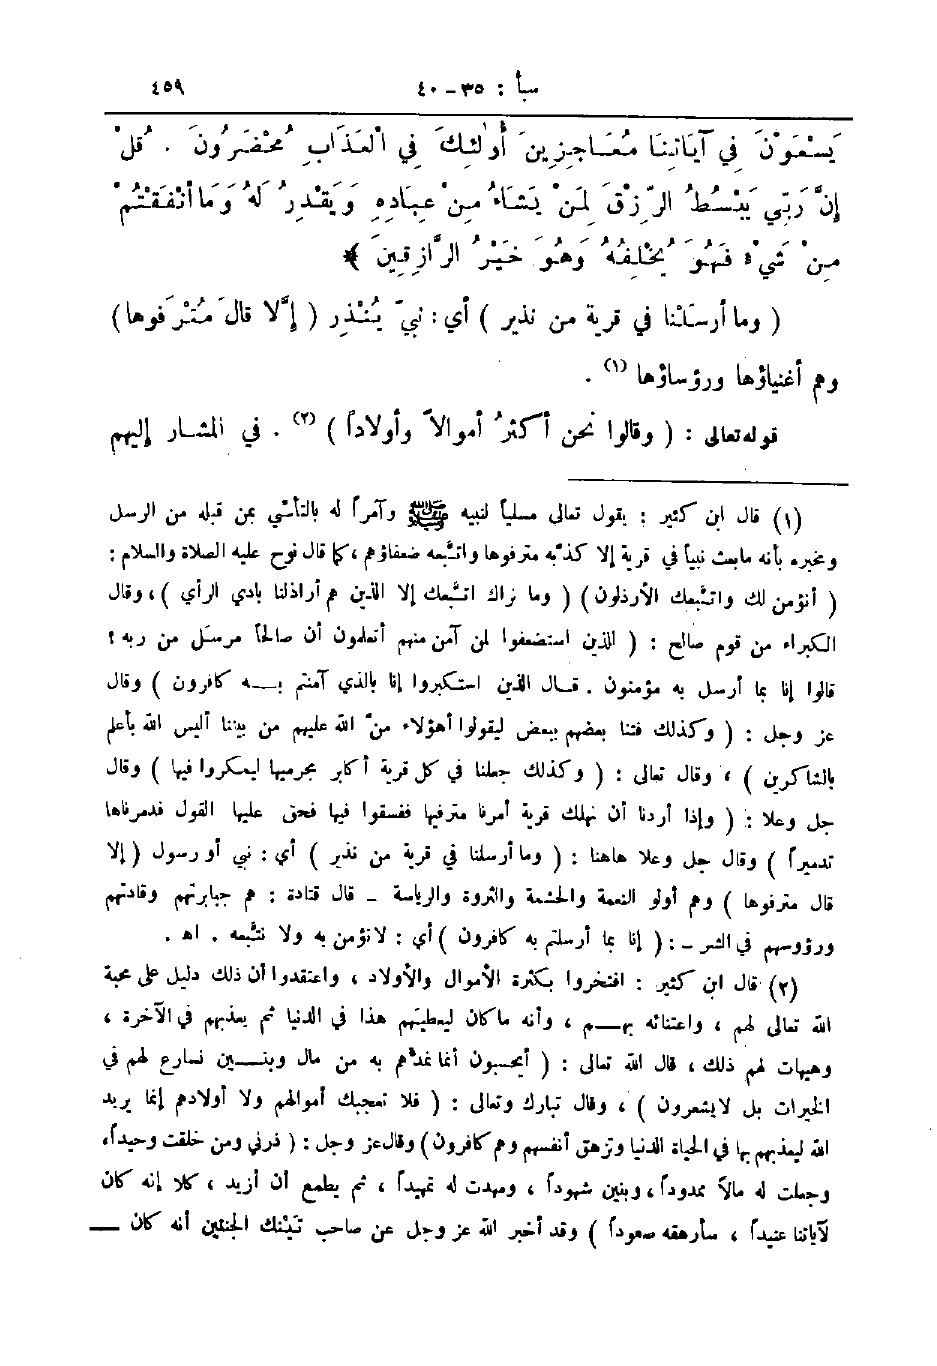 سبأ : ٣٥ – ٤٠ ٤٥٩
يَسْعَوْنَ فِي آيَاتِنَا مُعَاجِزِينَ أُولٰئِكَ فِي الْعَذَابِ مُحْضَرُونَ . قُلْ
إِنَّ رَبِّي يَبْسُطُ الرِّزْقَ لِمَنْ يَشَاءُ مِنْ عِبَادِهِ وَيَقْدِرُ لَهُ وَمَا أَنْفَقْتُمْ
مِنْ شَيْءٍ فَهُوَ يُخْلِفُهُ وَهُوَ خَيْرُ الرَّازِقِينَ ﴾
( وما أرسَلْنا في قرية من نذير ) أي : نبيّ يُنْذِر ( إِلَّا قالَ مُتْرَفوها )
وهم أغنياؤها ورؤساؤها (١) .
قوله تعالى : ( وقالوا نحن أكثرُ أموالاً وأولاداً ) (٢) . في المشار إليهم
(١) قال ابن كثير : يقول تعالى مسلياً لنبيه ﷺ وآمراً له بالتأسّي بمن قبله من الرسل
ومخبره بأنه مابعث نبياً في قرية إلا كذّبه مترفوها واتبعه ضعفاؤهم ، كما قال نوح عليه الصلاة والسلام :
( أنؤمن لك واتبعك الأرذلون ) ( وما نراك اتبعك إلا الذين هم أراذلنا بادي الرأي ) ، وقال
الكبراء من قوم صالح : ( للذين استضعفوا لمن آمن منهم أتعلمون أن صالحاً مرسل من ربه ؟
قالوا إنا بما أرسل به مؤمنون . قـال الذين استكبروا إنا بالذي آمنتم بـه كافرون ) وقال
عز وجل : ( وكذلك فتنا بعضهم ببعض ليقولوا أهؤلاء منّ الله عليهم من بيننا أليس الله بأعلم
بالشاكرين ) ، وقال تعالى : ( وكذلك جعلنا في كل قرية أكابر مجرميها ليمكروا فيها ) وقال
جل وعلا : ( وإذا أردنا أن نهلك قرية أمرنا مترفيها ففسقوا فيها فحق عليها القول فدمرناها
تدميراً ) وقال جل وعلا هاهنا : ( وما أرسلنا في قرية من نذير ) أي : نبي أو رسول ( إلا
قال مترفوها ) وهم أولو النعمة والحشمة والثروة والرياسة – قال قتادة : هم جبابرتهم وقادتهم
ورؤوسهم في الشر – : ( إنا بما أرسلتم به كافرون ) أي : لا نؤمن به ولا نتّبعه . اهـ .
(٢) قال ابن كثير : افتخروا بكثرة الأموال والأولاد ، واعتقدوا أن ذلك دليل على محبة
الله تعالى لهم ، واعتنائه بهـم ، وأنه ماكان ليعطيهم هذا في الدنيا ثم يعذبهم في الآخرة ،
وهيهات لهم ذلك ، قال الله تعالى : ( أيحسبون أنما نمدهم به من مال وبنـين نسارع لهم في
الخيرات بل لايشعرون ) ، وقال تبارك وتعالى : ( فلا تعجبك أموالهم ولا أولادهم إنما يريد
الله ليعذبهم بها في الحياة الدنيا وتزهق أنفسهم وهم كافرون ) وقال عز وجل : ( ذرني ومن خلقت وحيداً،
وجعلت له مالاً ممدوداً ، وبنين شهوداً ، ومهدت له تمهيداً ، ثم يطمع أن أزيد ، كلا إنه كان
لآياتنا عنيداً ، سأرهقه صعوداً ) وقد أخبر الله عز وجل عن صاحب تَيْنك الجنتين أنه كان –